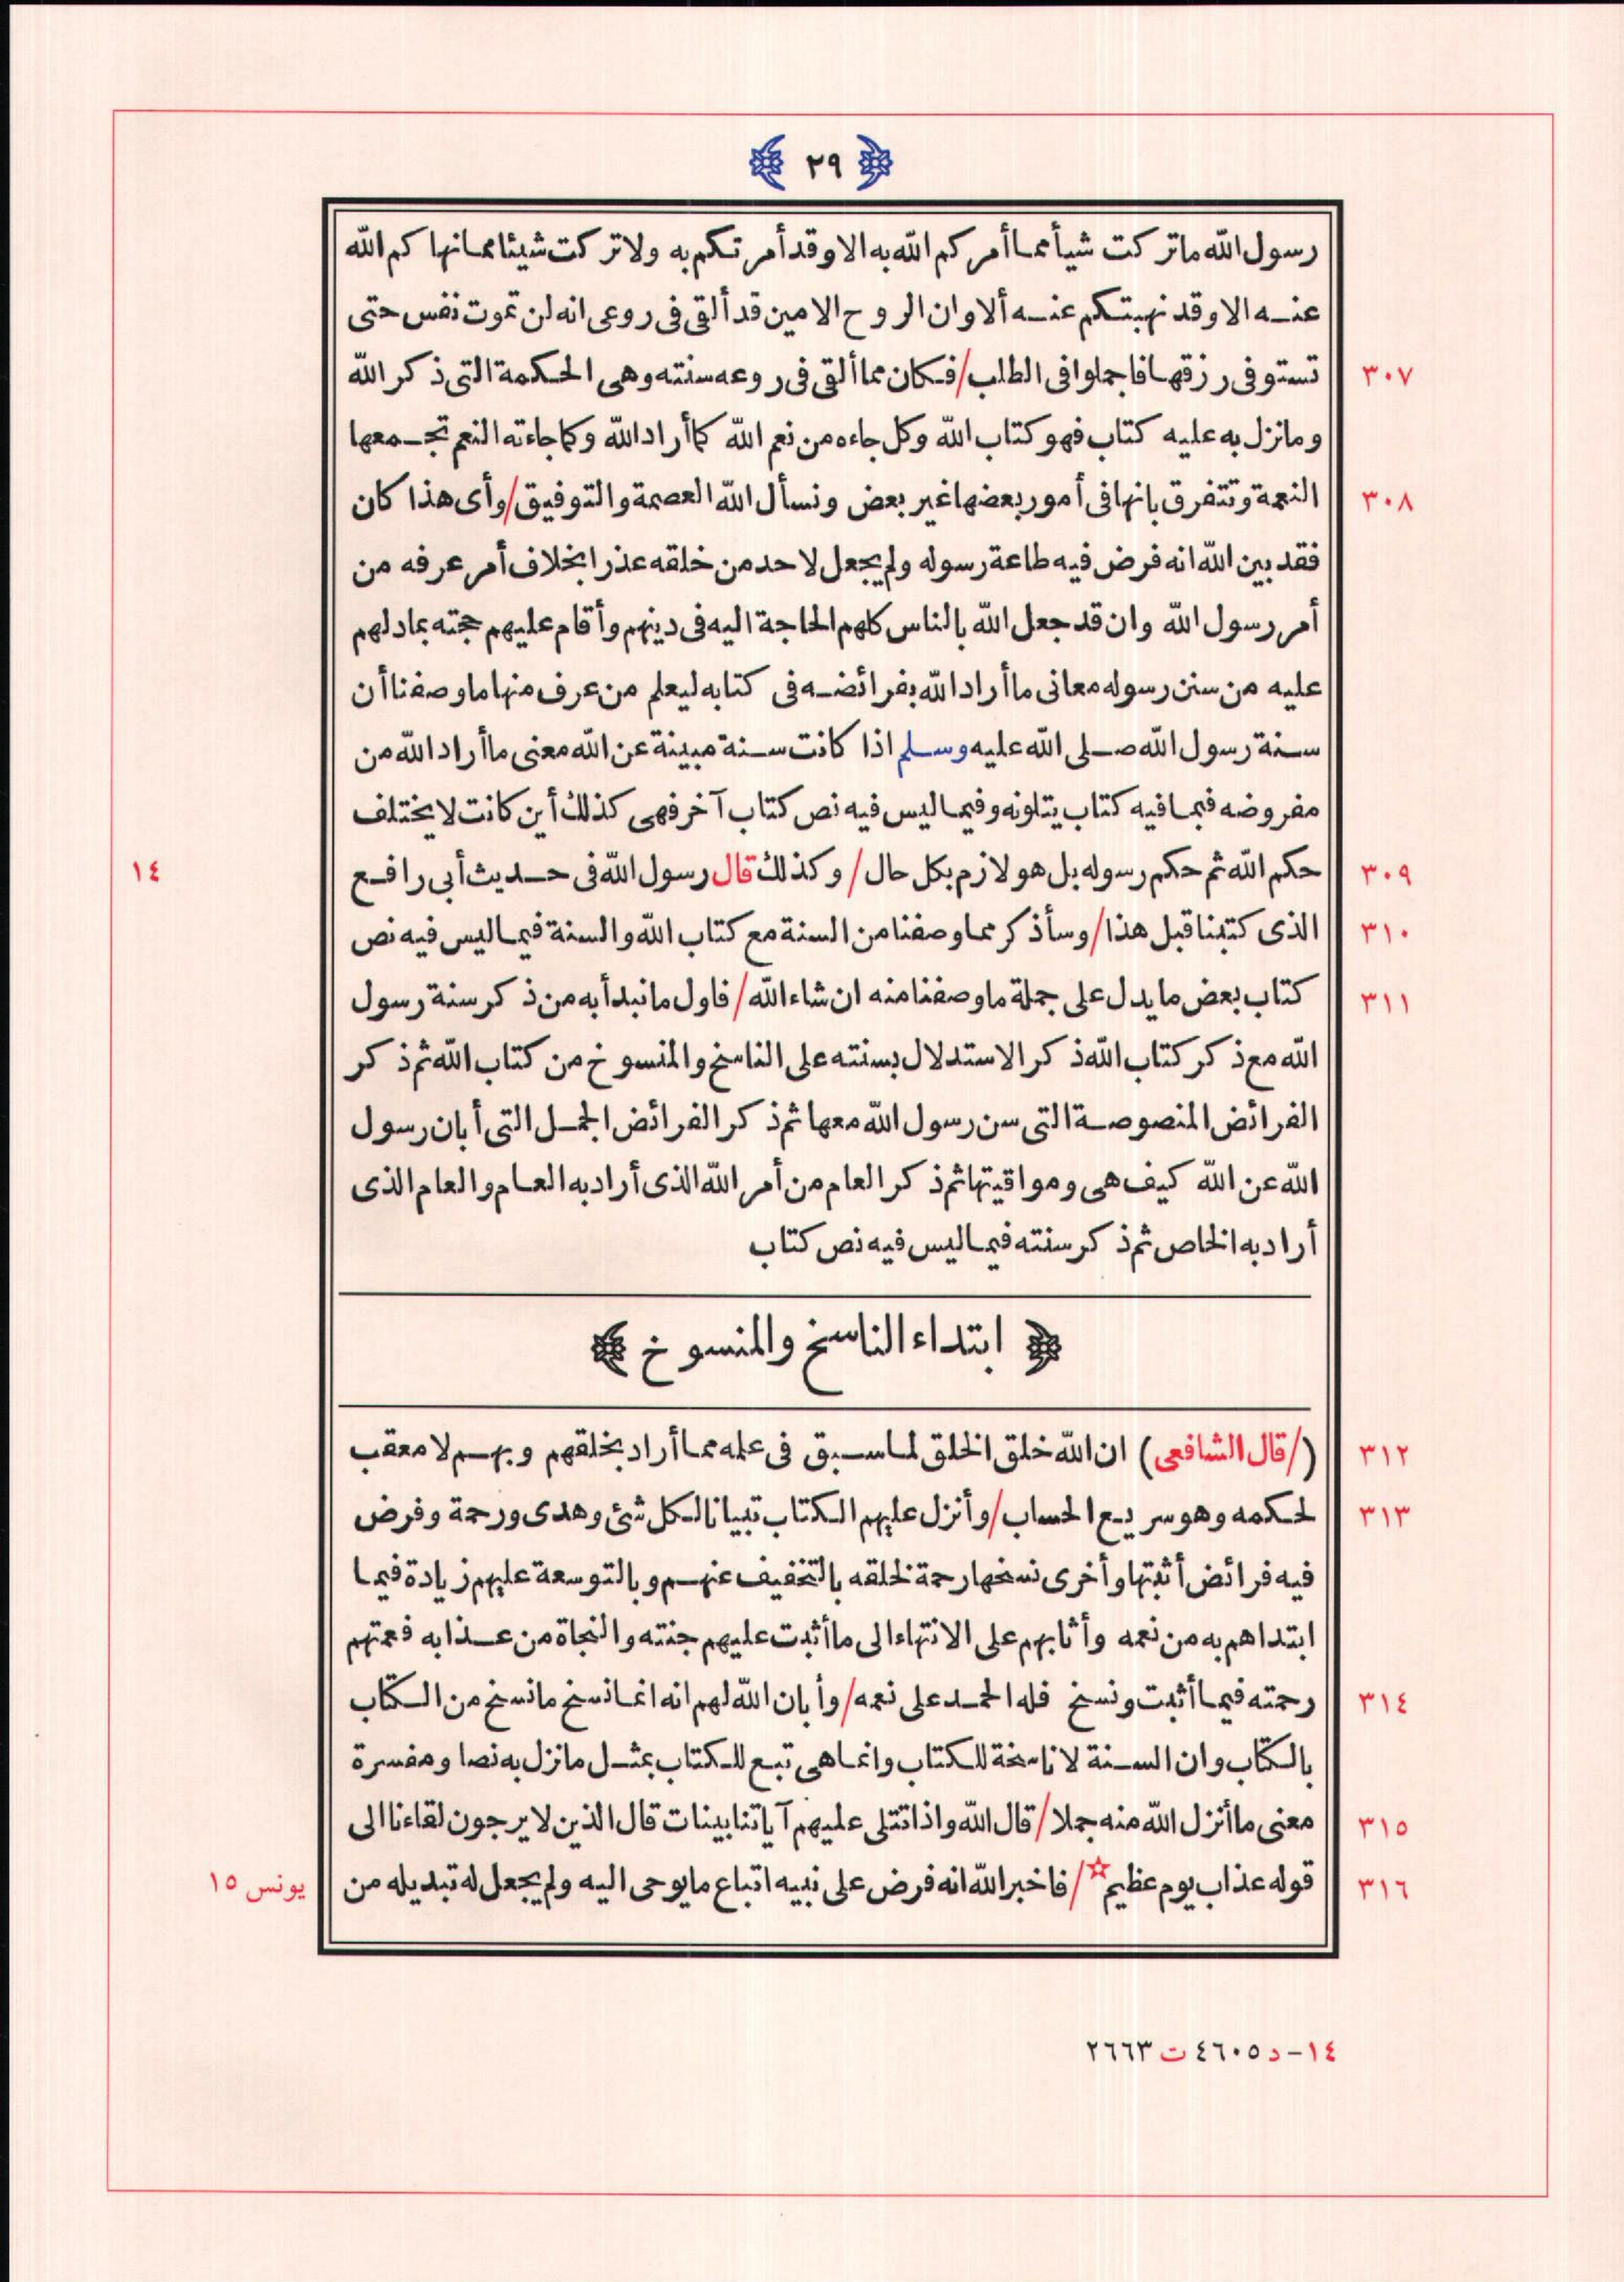 ٢٩
رسول الله ما تركت شيأ مما أمركم الله به الا وقد أمرتكم به ولا تركت شيئا مما نهاكم الله
عنه الا وقد نهيتكم عنه ألا وان الروح الامين قد ألقى فى روعى انه لن تموت نفس حتى
٣٠٧ تستوفى رزقها فاجملوا فى الطلب/ فكان مما ألقى فى روعه سنته وهى الحكمة التى ذكر الله
وما نزل به عليه كتاب فهو كتاب الله وكل جاءه من نعم الله كما أراد الله وكما جاءته النعم تجمعها
٣٠٨ النعمة وتتفرق بانها فى أمور بعضها غير بعض ونسأل الله العصمة والتوفيق/ وأى هذا كان
فقد بين الله انه فرض فيه طاعة رسوله ولم يجعل لاحد من خلقه عذرا بخلاف أمر عرفه من
أمر رسول الله وان قد جعل الله بالناس كلهم الحاجة اليه فى دينهم وأقام عليهم حجته بما دلهم
عليه من سنن رسوله معانى ما أراد الله بفرائضه فى كتابه ليعلم من عرف منها ما وصفنا أن
سنة رسول الله صلى الله عليه وسلم اذا كانت سنة مبينة عن الله معنى ما أراد الله من
مفروضه فيما فيه كتاب يتلونه وفيما ليس فيه نص كتاب آخر فهى كذلك أين كانت لا يختلف
٣٠٩ حكم الله ثم حكم رسوله بل هو لازم بكل حال/ وكذلك قال رسول الله فى حديث أبى رافع ١٤
٣١٠ الذى كتبنا قبل هذا/ وسأذكر مما وصفنا من السنة مع كتاب الله والسنة فيما ليس فيه نص
٣١١ كتاب بعض ما يدل على جملة ما وصفنا منه ان شاء الله/ فاول ما نبدأ به من ذكر سنة رسول
الله مع ذكر كتاب الله ذكر الاستدلال بسنته على الناسخ والمنسوخ من كتاب الله ثم ذكر
الفرائض المنصوصة التى سن رسول الله معها ثم ذكر الفرائض الجمل التى أبان رسول
الله عن الله كيف هى ومواقيتها ثم ذكر العام من أمر الله الذى أراد به العام والعام الذى
أراد به الخاص ثم ذكر سنته فيما ليس فيه نص كتاب
ابتداء الناسخ والمنسوخ
٣١٢ (/قال الشافعى) ان الله خلق الخلق لما سبق فى علمه مما أراد بخلقهم وبهم لا معقب
٣١٣ لحكمه وهو سريع الحساب/ وأنزل عليهم الكتاب تبيانا لكل شئ وهدى ورحمة وفرض
فيه فرائض أثبتها وأخرى نسخها رحمة لخلقه بالتخفيف عنهم وبالتوسعة عليهم زيادة فيما
ابتداهم به من نعمه وأثابهم على الانتهاء الى ما أثبت عليهم جنته والنجاة من عذابه فعمتهم
٣١٤ رحمته فيما أثبت ونسخ فله الحمد على نعمه/ وأبان الله لهم انه انما نسخ ما نسخ من الكتاب
بالكتاب وان السنة لا ناسخة للكتاب وانما هى تبع للكتاب بمثل ما نزل به نصا ومفسرة
٣١٥ معنى ما أنزل الله منه جملا/ قال الله واذا تتلى عليهم آياتنا بينات قال الذين لا يرجون لقاءنا الى
٣١٦ قوله عذاب يوم عظيم☆/ فاخبر الله انه فرض على نبيه اتباع ما يوحى اليه ولم يجعل له تبديله من يونس ١٥
١٤- د ٤٦٠٥ ت ٢٦٦٣